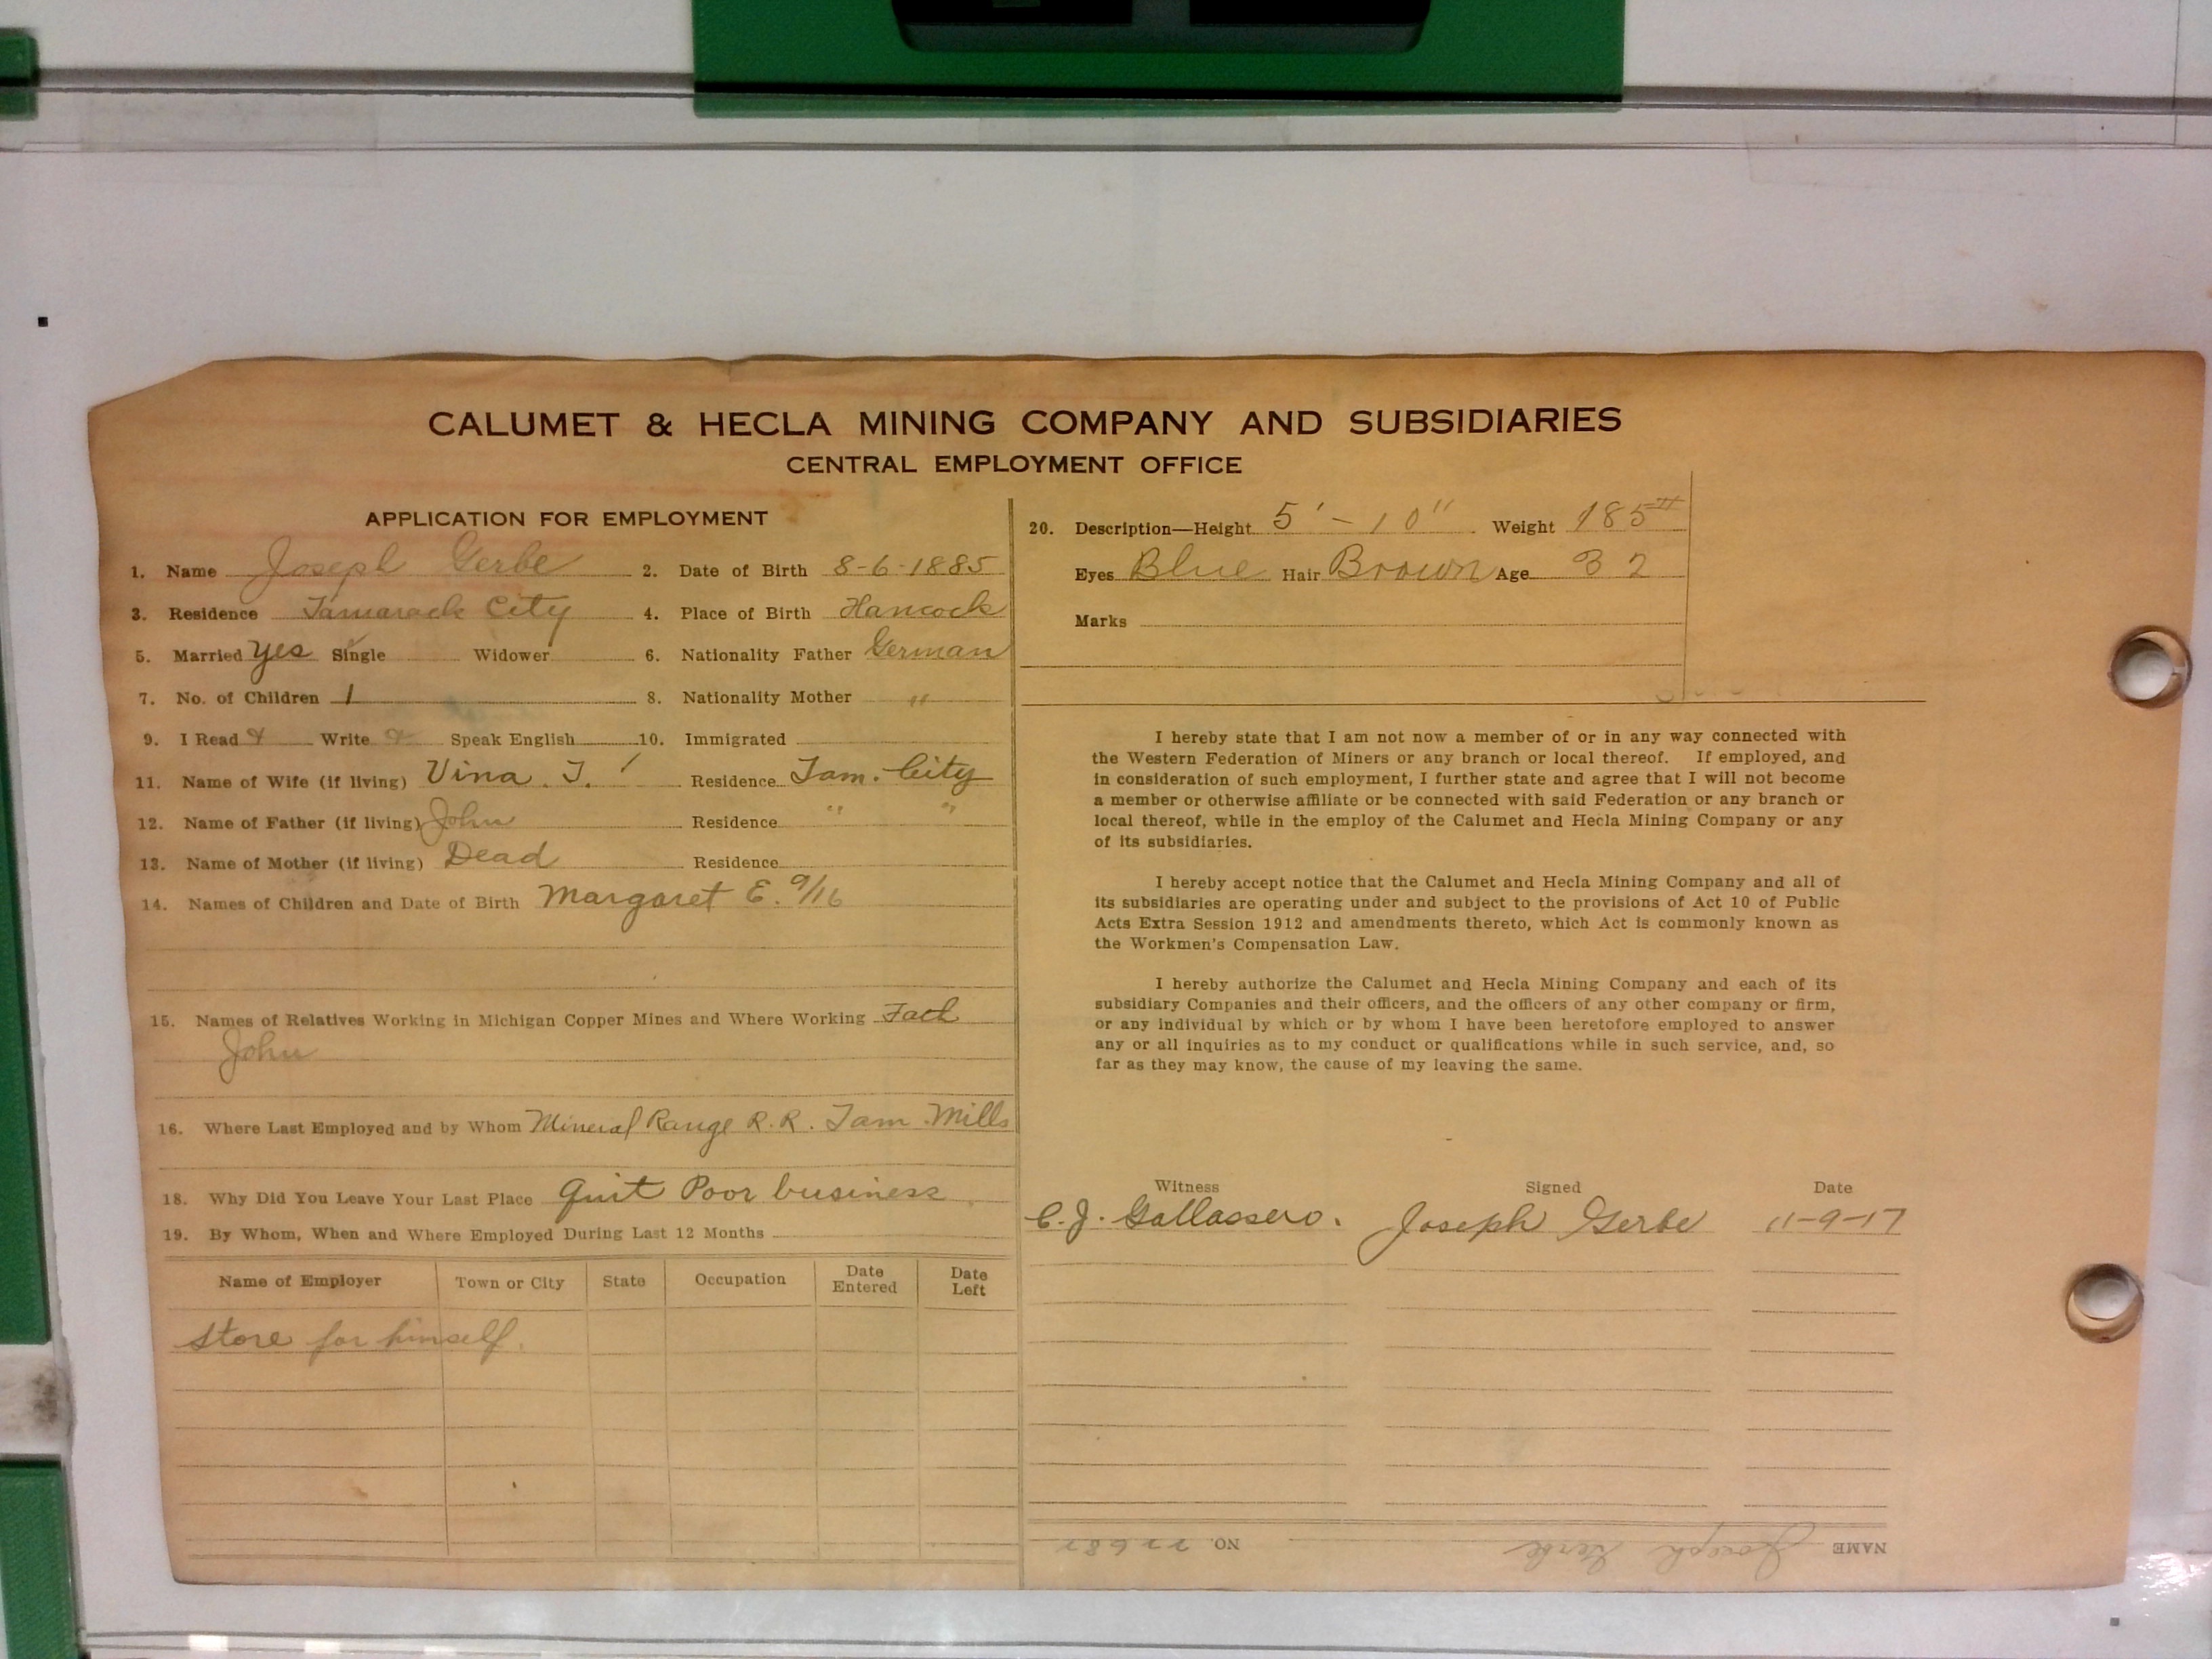 CALUMET & HECLA MINING COMPANY AND SUBSIDIARIES
CENTRAL EMPLOYMENT OFFICE
APPLICATION FOR EMPLOYMENT
1. Name Joseph Gerbe 2. Date of Birth 8-6-1885
3. Residence Tamarack City 4. Place of Birth Hancock
5. Married Yes Single Widower 6. Nationality Father German
7. No. of Children 1 8. Nationality Mother "
9. I Read Write Speak English 10. Immigrated
11. Name of Wife (if living) Vina. T. Residence Tam. City
12. Name of Father (if living) John Residence " "
13. Name of Mother (if living) Dead Residence
14. Names of Children and Date of Birth Margaret E. 9/16
15. Names of Relatives Working in Michigan Copper Mines and Where Working Fath
John
16. Where Last Employed and by Whom Mineral Range R.R. Tam. Mills
18. Why Did You Leave Your Last Place Quit Poor business
19. By Whom, When and Where Employed During Last 12 Months
Name of Employer Town or City State Occupation Date Entered Date Left
Store for himself.
20. Description—Height 5'-10" Weight 185#
Eyes Blue Hair Brown Age 32
Marks
I hereby state that I am not now a member of or in any way connected with
the Western Federation of Miners or any branch or local thereof. If employed, and
in consideration of such employment, I further state and agree that I will not become
a member or otherwise affiliate or be connected with said Federation or any branch or
local thereof, while in the employ of the Calumet and Hecla Mining Company or any
of its subsidiaries.
I hereby accept notice that the Calumet and Hecla Mining Company and all of
its subsidiaries are operating under and subject to the provisions of Act 10 of Public
Acts Extra Session 1912 and amendments thereto, which Act is commonly known as
the Workmen's Compensation Law.
I hereby authorize the Calumet and Hecla Mining Company and each of its
subsidiary Companies and their officers, and the officers of any other company or firm,
or any individual by which or by whom I have been heretofore employed to answer
any or all inquiries as to my conduct or qualifications while in such service, and, so
far as they may know, the cause of my leaving the same.
Witness Signed Date
C. J. Gallassero. Joseph Gerbe 11-9-17
NAME Joseph Gerbe NO. 22682